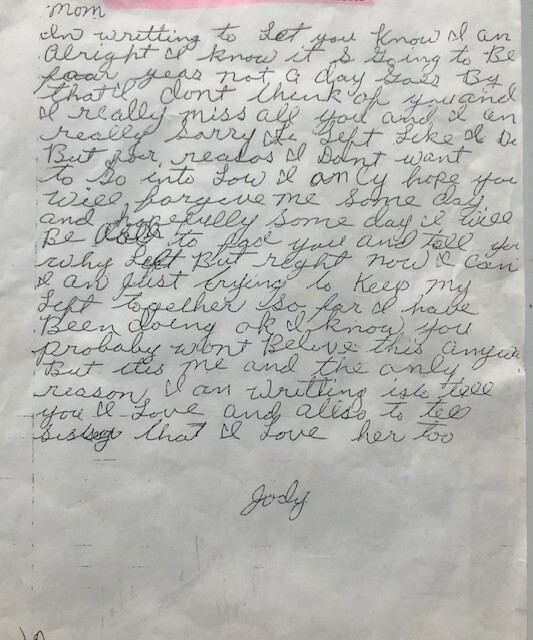 mom
In writting to Let you Know I am
Alright I know it s going to Be
foar year not a day goes By
that I dont think of you and
I really miss all you and I am
really sorry I Left Like I Di
But for reasos I Dont want
to go into Low I am Cy hope you
Will forgive me some day
and hopefully some day I will
Be able to you and tell yo
why Left But right now I Can
I am Just trying to Keep my
Self together so far I have
Been doing ok I know you
probaby wont Belive this anyw
But it is me and the only
reason I am writting is to tell
you I Love and aliso to tell
sissy that I Love her too
Jody